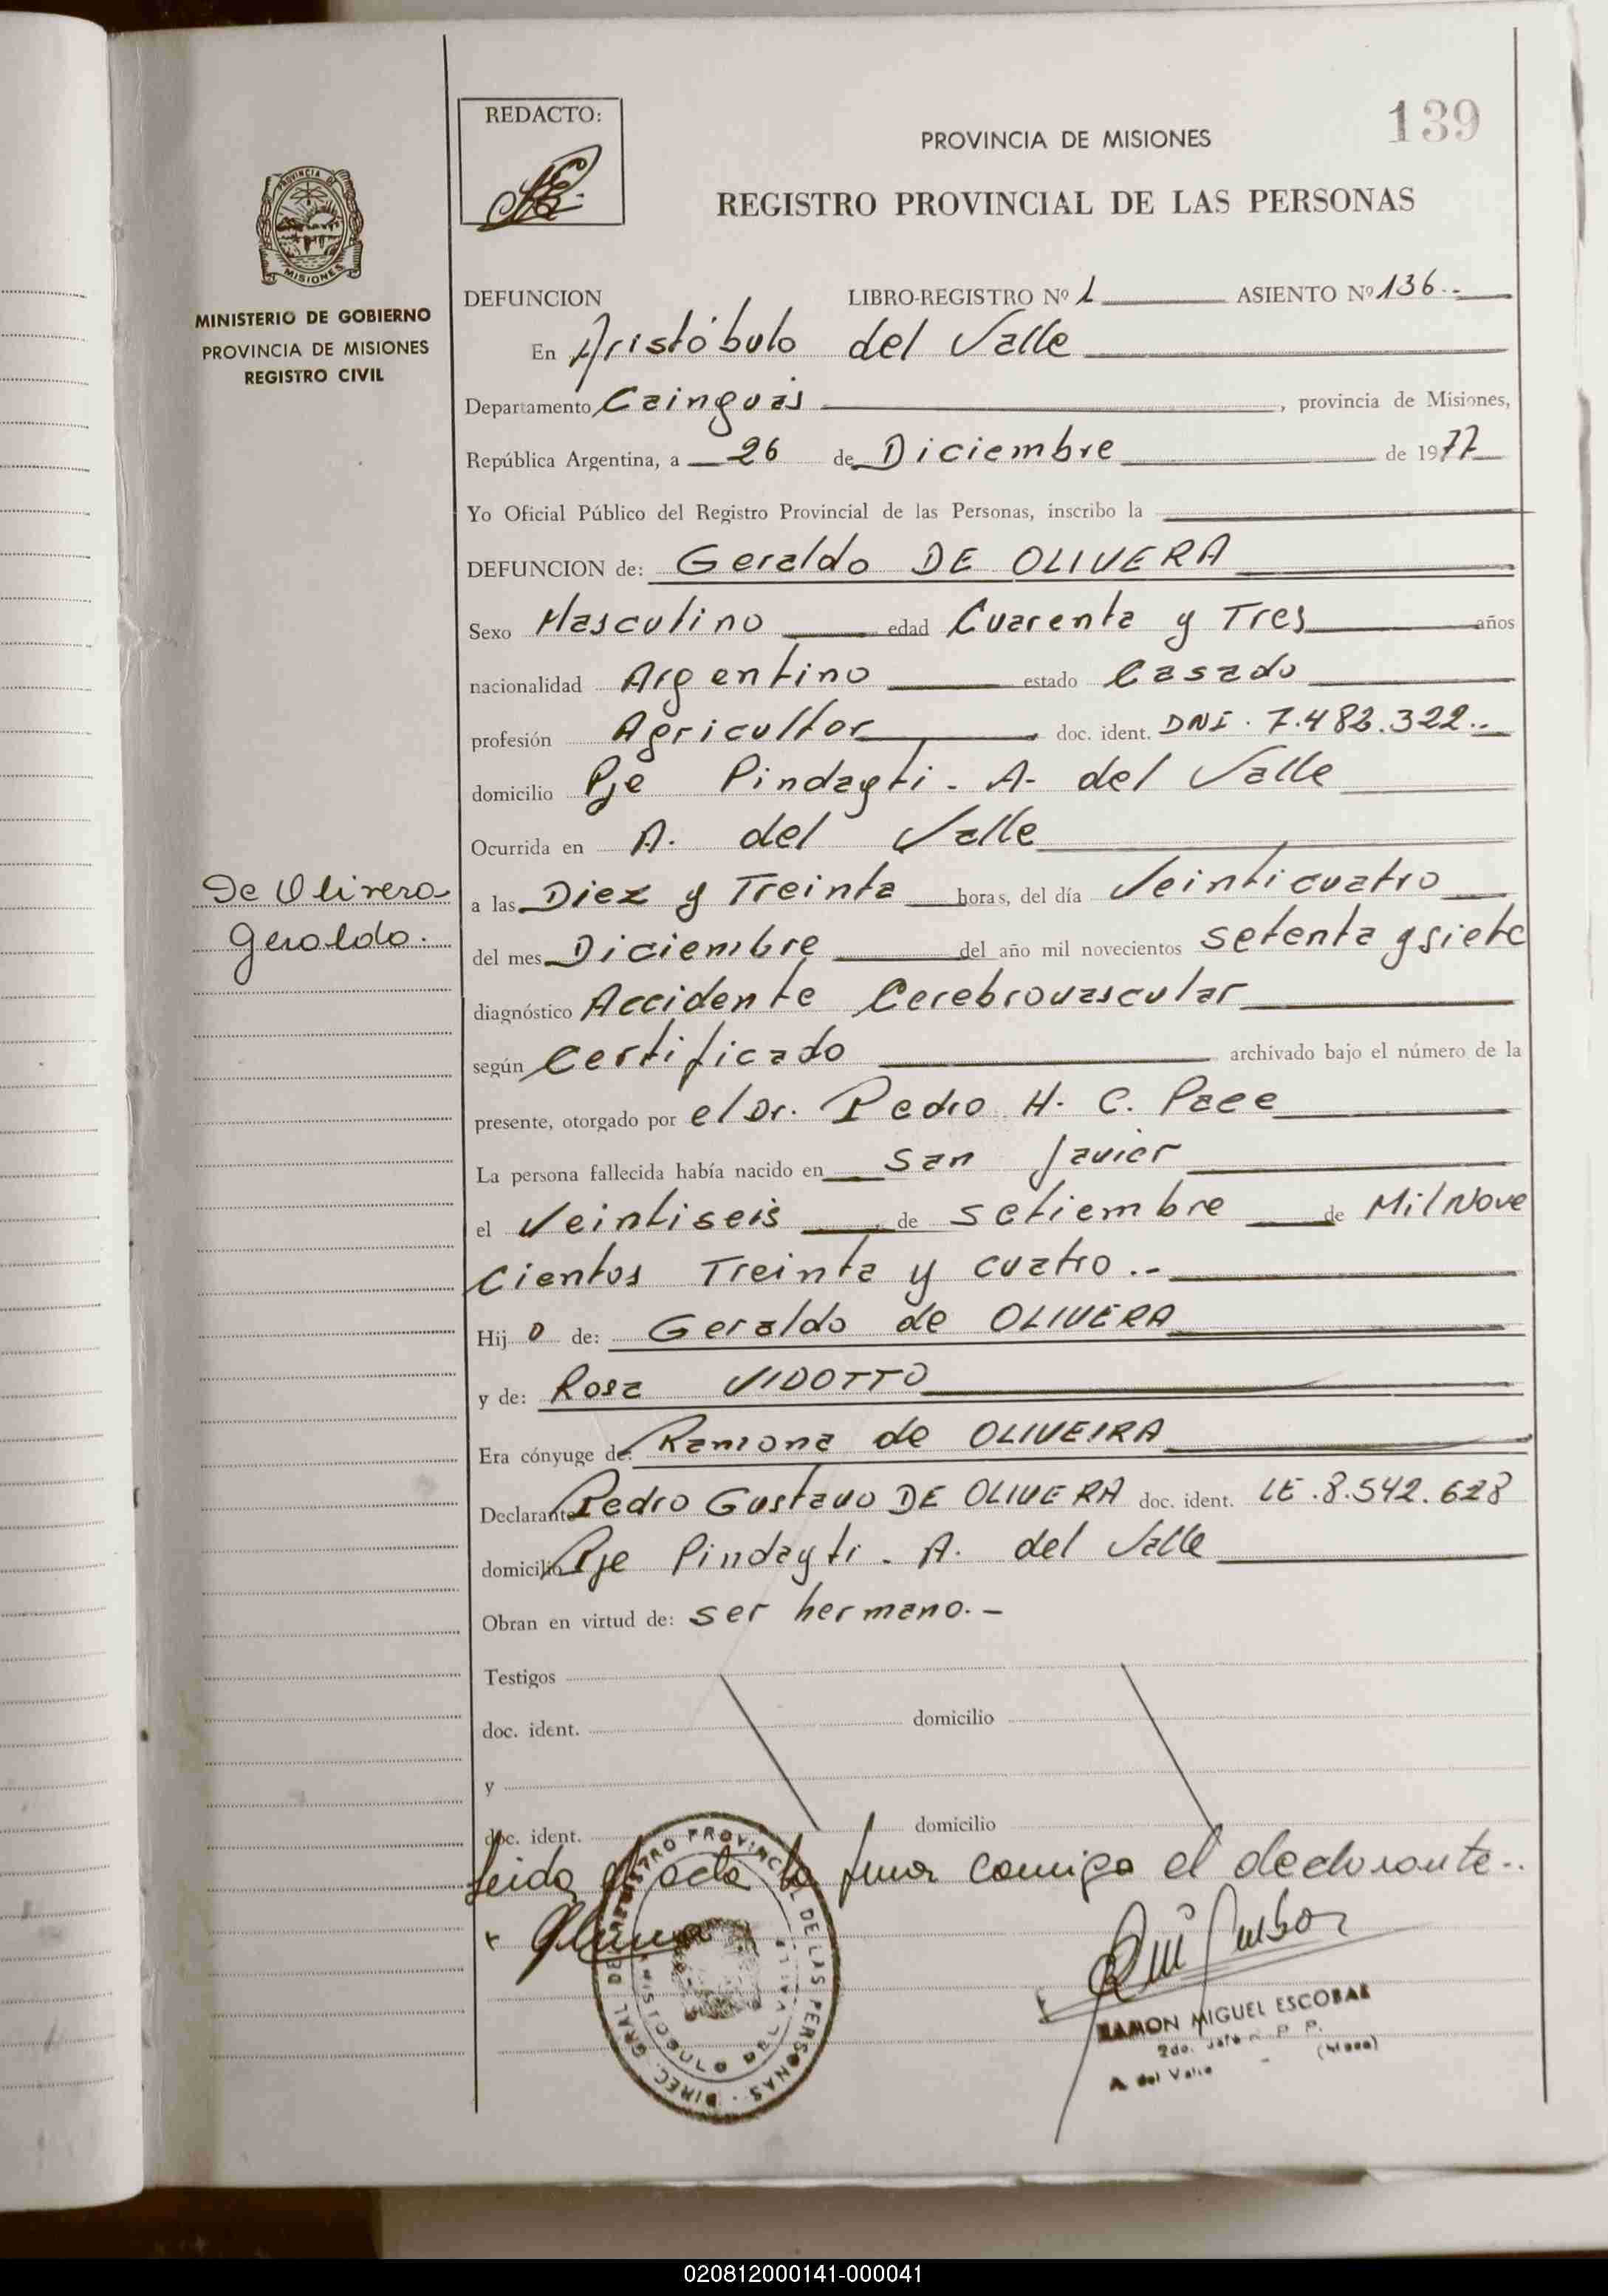 139
REDACTO:
PROVINCIA DE MISIONES
REGISTRO PROVINCIAL DE LAS PERSONAS
PROVINCIA DE
MISIONES
MINISTERIO DE GOBIERNO
PROVINCIA DE MISIONES
REGISTRO CIVIL
DEFUNCION LIBRO-REGISTRO Nº 1 ASIENTO Nº 136.-
En Aristóbulo del Valle
Departamento Cainguás, provincia de Misiones,
República Argentina, a 26 de Diciembre de 1977
Yo Oficial Público del Registro Provincial de las Personas, inscribo la
DEFUNCION de: Geraldo DE OLIVERA
Sexo Masculino edad Cuarenta y Tres años
nacionalidad Argentino estado Casado
profesión Agricultor doc. ident. DNI. 7.482.322.-
domicilio Pje Pindayti - A. del Valle
Ocurrida en A. del Valle
De Olivera
Geraldo.
a las Diez y Treinta horas, del día Veinticuatro
del mes Diciembre del año mil novecientos setenta y siete
diagnóstico Accidente Cerebrovascular
según Certificado archivado bajo el número de la
presente, otorgado por el Dr. Pedro H. C. Pace
La persona fallecida había nacido en San Javier
el Veintiseis de setiembre de Mil Nove
cientos Treinta y cuatro.-
Hijo de: Geraldo de OLIVERA
y de: Rosa VIDOTTO
Era cónyuge de: Ramona de OLIVEIRA
Declarante Pedro Gustavo DE OLIVERA doc. ident. LE. 8.542.628
domicilio Pje Pindayti - A. del Valle
Obran en virtud de: ser hermano.-
Testigos
doc. ident. domicilio
y
doc. ident. domicilio
Leida el acta la firma conmigo el declarante.-
DIREC. GRAL. DEL REGISTRO PROVINCIAL DE LAS PERSONAS
ARISTOBULO DEL VALLE
RAMON MIGUEL ESCOBAR
2do. Jefe R. P. P.
A. del Valle (Mnes)
020812000141-000041